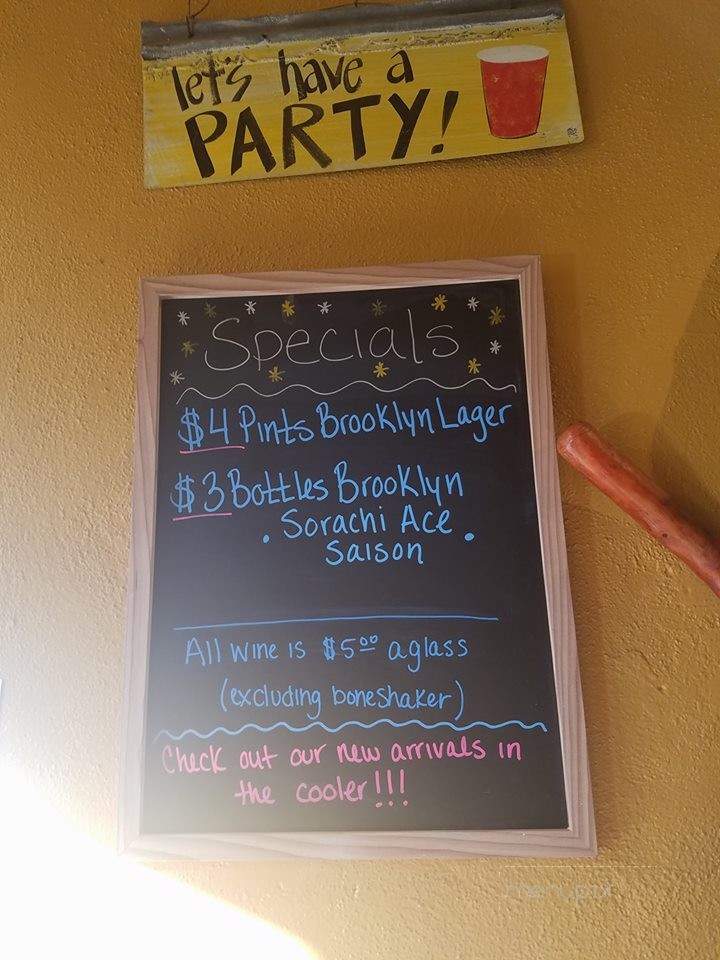 let's have a
PARTY!
Specials
$4 Pints Brooklyn Lager
$3 Bottles Brooklyn
• Sorachi Ace •
Saison
All wine is $5.00 a glass
(excluding boneshaker)
Check out our new arrivals in
the cooler!!!
menupix